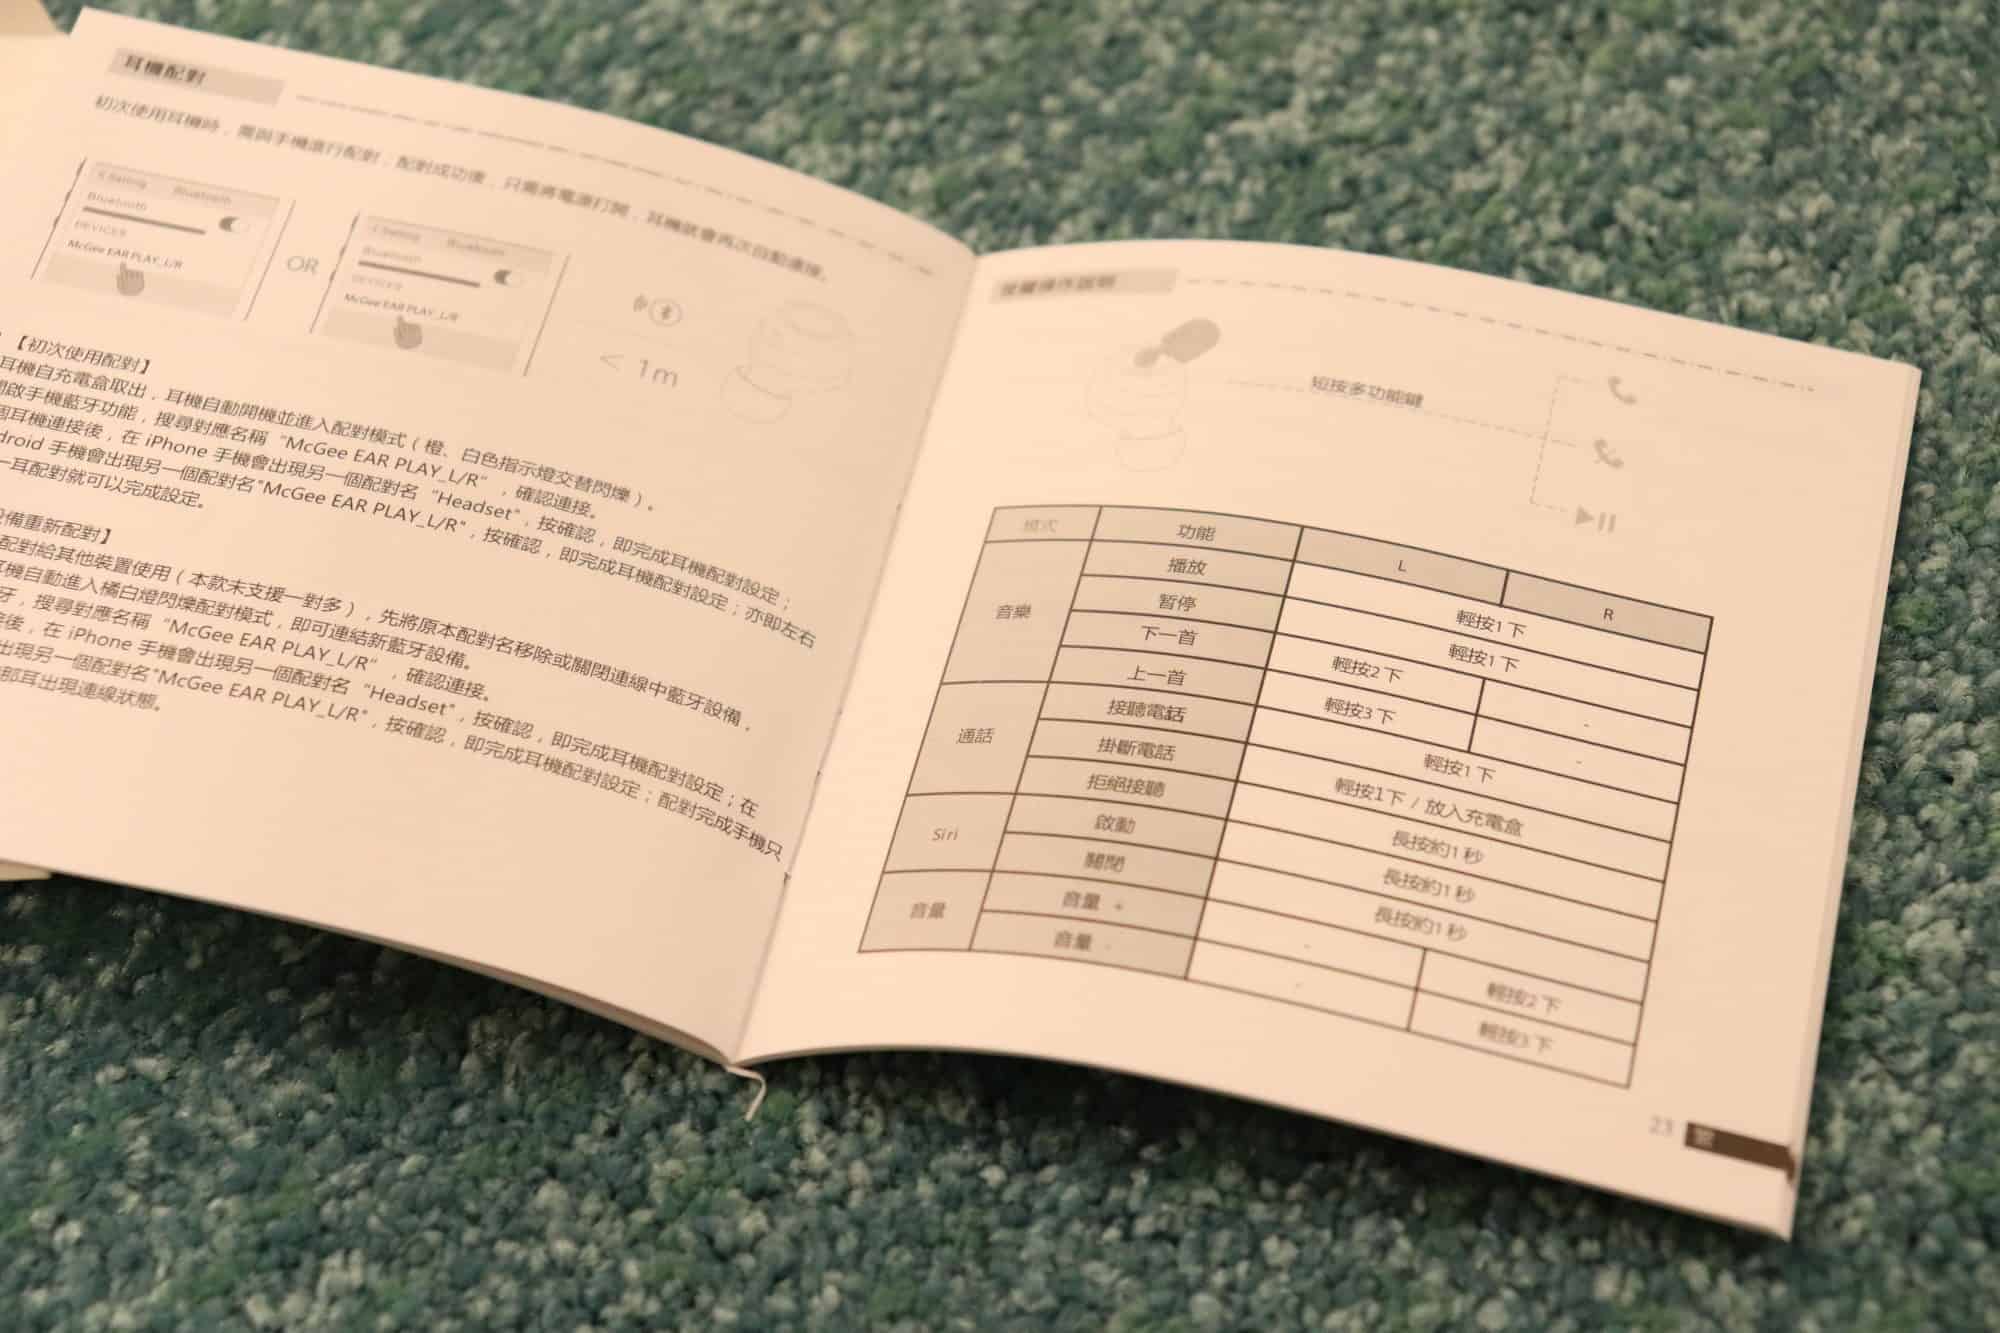 耳機配對
初次使用耳機時，需與手機進行配對，配對成功後，只需將電源打開，耳機就會再次自動連接。
< Setting Bluetooth
Bluetooth
DEVICES
McGee EAR PLAY_L/R
OR
< Setting Bluetooth
Bluetooth
DEVICES
McGee EAR PLAY_L/R
< 1m
【初次使用配對】
耳機自充電盒取出，耳機自動開機並進入配對模式（橙、白色指示燈交替閃爍）。
啟手機藍牙功能，搜尋對應名稱 “McGee EAR PLAY_L/R" ，確認連接。
耳機連接後，在 iPhone 手機會出現另一個配對名 “Headset"，按確認，即完成耳機配對設定；
droid 手機會出現另一個配對名"McGee EAR PLAY_L/R"，按確認，即完成耳機配對設定；亦即左右
一耳配對就可以完成設定。
備重新配對】
配對給其他裝置使用（本款未支援一對多），先將原本配對名移除或關閉連線中藍牙設備，
耳機自動進入橘白燈閃爍配對模式，即可連結新藍牙設備。
牙，搜尋對應名稱 “McGee EAR PLAY_L/R" ，確認連接。
後，在 iPhone 手機會出現另一個配對名 “Headset"，按確認，即完成耳機配對設定；在
出現另一個配對名"McGee EAR PLAY_L/R"，按確認，即完成耳機配對設定；配對完成手機只
部耳出現連線狀態。
按鍵操作說明
短按多功能鍵
模式 功能 L R
音樂 播放 輕按1下
暫停 輕按1下
下一首 輕按2下 -
上一首 輕按3下 -
通話 接聽電話 輕按1下
掛斷電話 輕按1下 / 放入充電盒
拒絕接聽 長按約1秒
Siri 啟動 長按約1秒
關閉 長按約1秒
音量 音量 + - 輕按2下
音量 - - 輕按3下
23